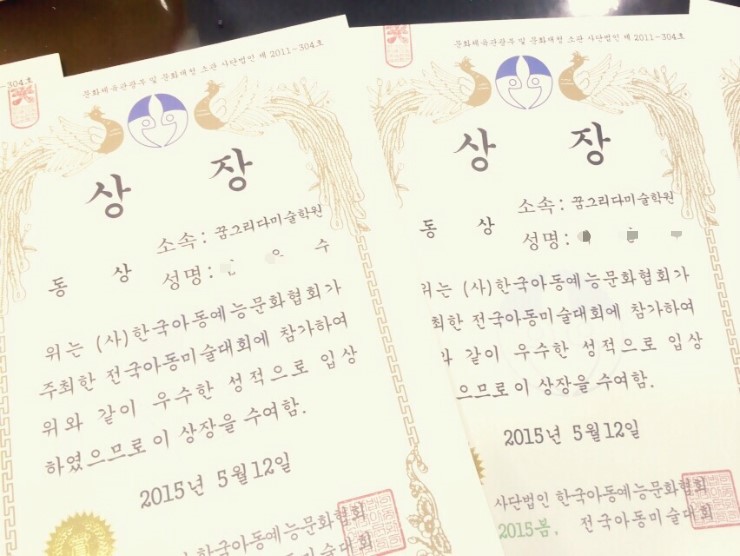 -304호
문화체육관광부 및 문화재청 소관 사단법인 제 2011-304호
상 장
동 상
소속: 꿈그리다미술학원
성명: 수
위는 (사)한국아동예능문화협회가
주최한 전국아동미술대회에 참가하여
위와 같이 우수한 성적으로 입상
하였으므로 이 상장을 수여함.
2015년 5월12일
한국아동예능문화협회
전국아동미술대회
문화체육관광부 및 문화재청 소관 사단법인 제 2011-304호
상 장
동 상
소속: 꿈그리다미술학원
성명:
위는 (사)한국아동예능문화협회가
최한 전국아동미술대회에 참가하여
와 같이 우수한 성적으로 입상
으므로 이 상장을 수여함.
2015년 5월12일
사단법인 한국아동예능문화협회
2015봄, 전국아동미술대회